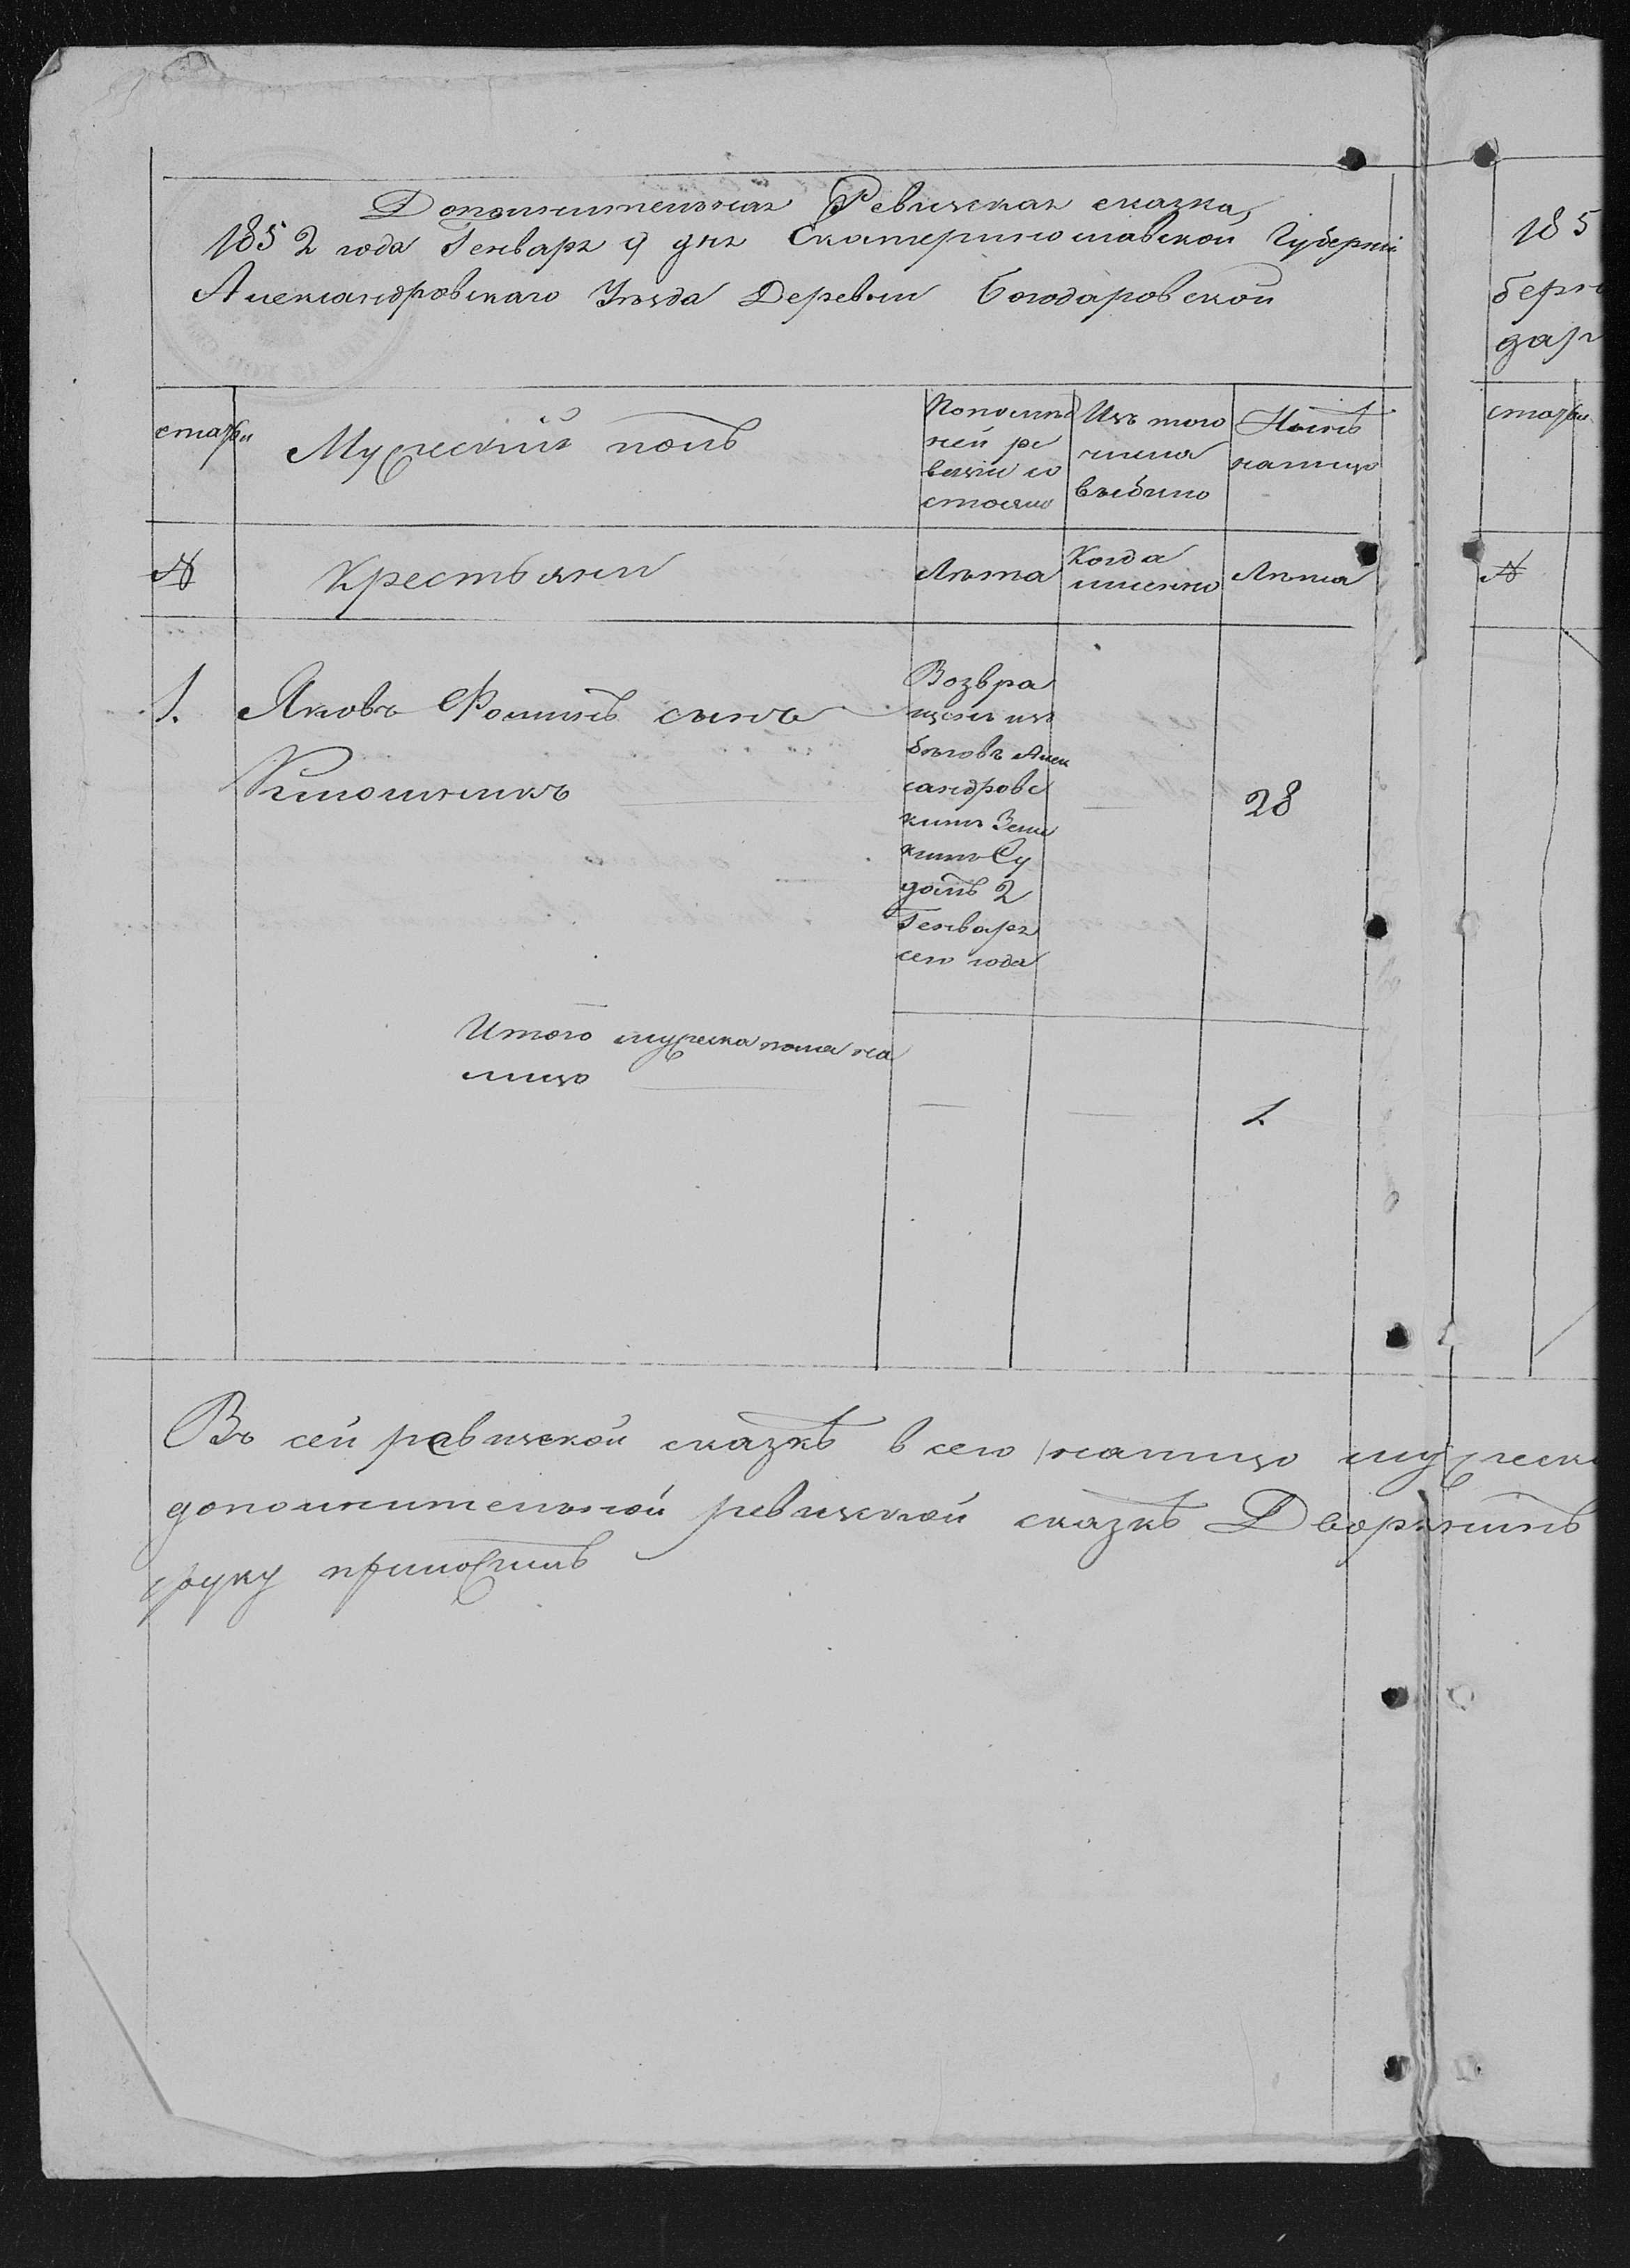 Дополнительная Ревизская сказка,
1852 года Генваря 9 дня Екатеринославской Губерніи
Александровскаго Уезда Деревни Богодаровской
Мужескій полъ
По послѣд
ней ре
визіи со
стояло
Изъ того
числа
выбыло
Нынѣ
налицо
№
Крестьяни
Лѣта
Когда
именно
Лѣта
1.
Яковъ Фоминъ сынъ
Возвра
щенъ изъ
бѣговъ Алек
сандровс
кимъ Земс
кимъ Су
домъ 2
Генваря
сего года
28
Итого мужеска пола на
лицо
1.
Въ сей ревизской сказкѣ всего налицо мужеска
дополнительной ревизской сказкѣ Дворянинъ
руку приложилъ
185
берн
дар
№